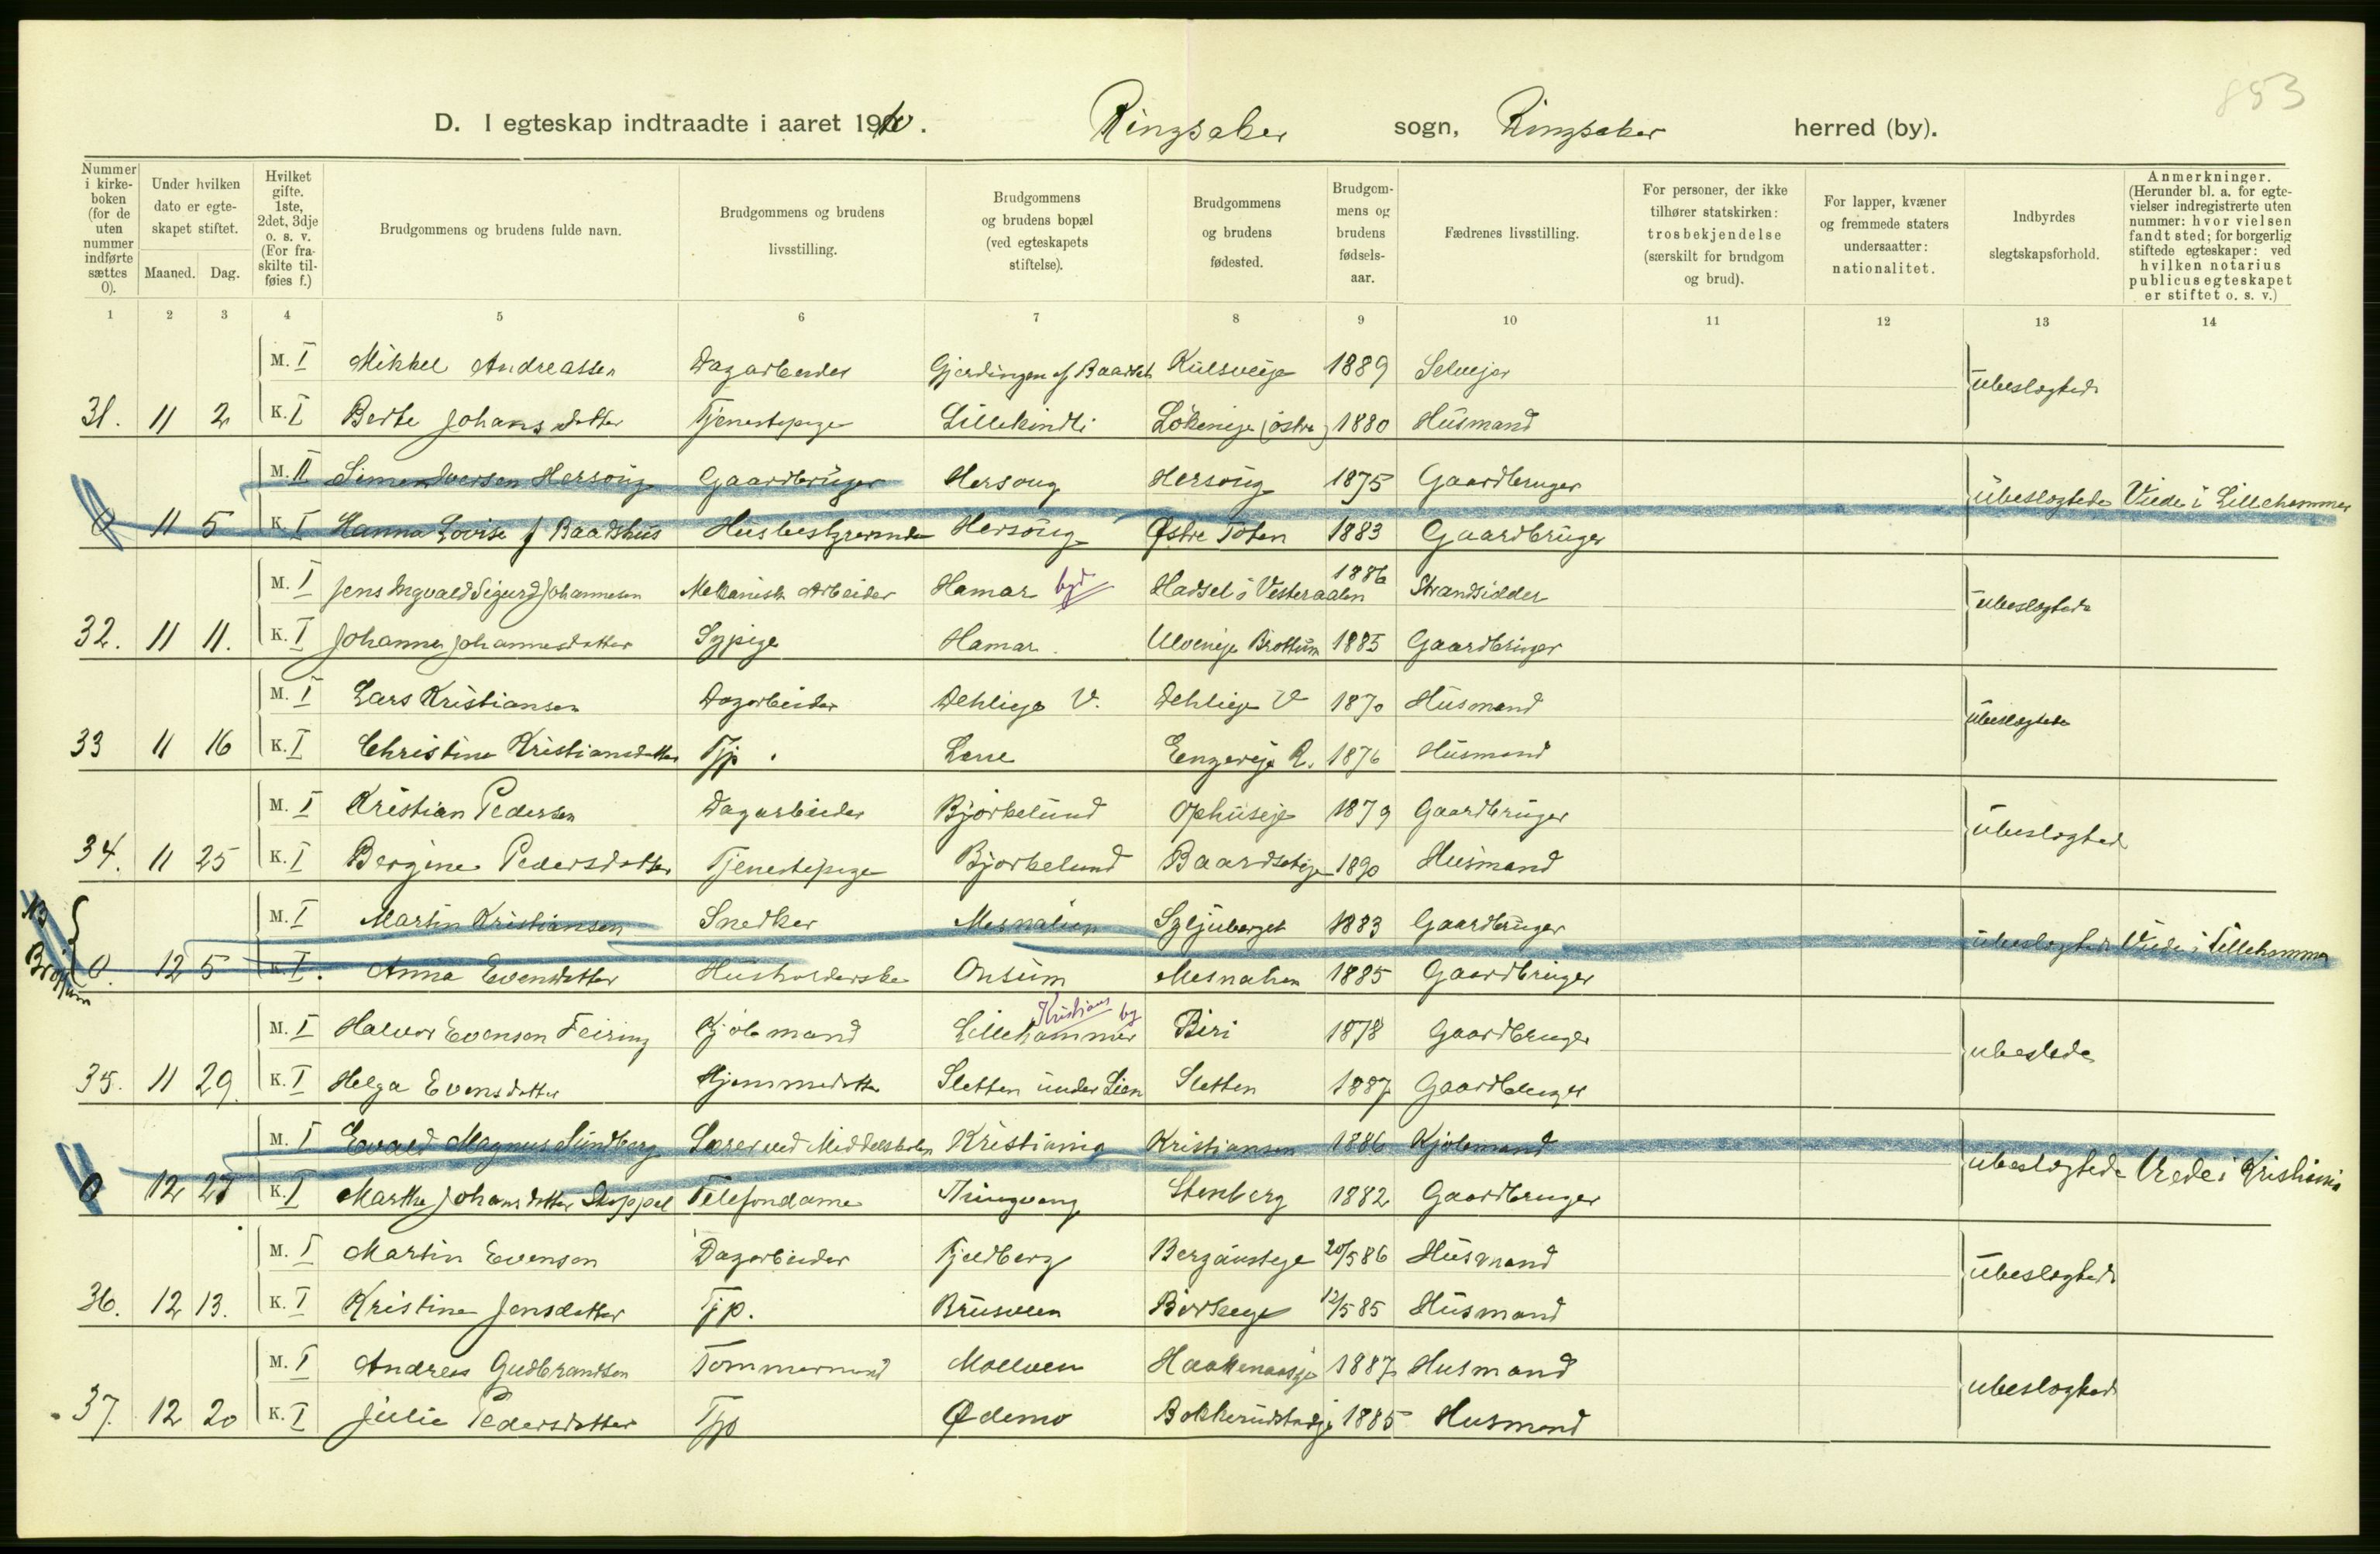 853
D. I egteskap indtraadte i aaret 1910. Ringsaker sogn, Ringsaker herred (by).
Nummer i kirke-boken (for de uten nummer indførte sættes 0).
Under hvilken dato er egte-skapet stiftet.
Maaned. Dag.
Hvilket gifte. 1ste, 2det, 3dje o. s. v. (For fra-skilte til-føies f.)
Brudgommens og brudens fulde navn.
Brudgommens og brudens livsstilling.
Brudgommens og brudens bopæl (ved egteskapets stiftelse).
Brudgommens og brudens fødested.
Brudgom-mens og brudens fødsels-aar.
Fædrenes livsstilling.
For personer, der ikke tilhører statskirken: trosbekjendelse (særskilt for brudgom og brud).
For lapper, kvæner og fremmede staters undersaatter: nationalitet.
Indbyrdes slegtskapsforhold.
Anmerkninger. (Herunder bl. a. for egte-vielser indregistrerte uten nummer: hvor vielsen fandt sted; for borgerlig stiftede egteskaper: ved hvilken notarius publicus egteskapet er stiftet o. s. v.)
1 2 3 4 5 6 7 8 9 10 11 12 13 14
M. I Mikkel Andreassen Dagarbeider Gjerdingen 1889 Selveier
ubeslegtede
31. 11 2 K. I Berte Johansdatter Tjenestepige Lillekindli 1880 Husmand
M. II Simen Iversen Hersoug Gaardbruger Hersoug Hersoug 1875 Gaardbruger
ubeslegtede Viede i Lillehammer
0 11 5 K. I Hanna Lovise f Baadshus Husbestyrerinde Hersoug Østre Toten 1883 Gaardbruger
M. I Jens Ingvald Sigurd Johannesen Mekanisk Arbeider Hamar by Hadsel i Vesteraalen 1886 Strandsidder
ubeslegtede
32. 11 11. K. I Johanne Johannesdatter Sypige Hamar. Brøttum 1885 Gaardbruger
M. I Lars Kristiansen Dagarbeider Dehlieie V. Dehlieie V 1870 Husmand
ubeslegtede
33 11 16 K. I Christine Kristiansdatter Tjp. 1876 Husmand
M. I Kristian Pedersen Dagarbeider Bjørkelund Ophuseie 1879 Gaardbruger
ubeslegtede
34. 11 25 K. I Bergine Pedersdatter Tjenestepige Bjørkelund Baardseteie 1890 Husmand
M. I Martin Kristiansen Snedker Mesnalien Sygljuberget 1883 Gaardbruger
ubeslegtede Viede i Lillehammer
Brøttum 0. 12 5 K. I. Anna Evensdatter Husholderske Onsum Mesnalien 1885 Gaardbruger
Kristians by
M. I Halvor Evensen Feiring Kjøbmand Lillehammer Biri 1878 Gaardbruger
ubeslede
35. 11 29. K. I Helga Evensdatter Hjemmedatter Sletten under Lien Sletten 1887 Gaardbruger
M. I Evald Magnus Sundberg Lærer ved Middelskolen Kristiania Kristiansen 1886 Kjøbmand
ubeslegtede Viede i Kristiania
0 12 27 K. I Marthe Johansdatter Skappel Telefondame Tingvang Stenberg 1882 Gaardbruger
M. I Martin Evensen Dagarbeider Fjeldberg 20/5 86 Husmand
ubeslegtede
36. 12 13. K. I Kristine Jensdatter Tjp. Brusveen 12/5 85 Husmand
M. I Andreas Gudbrandsen Tømmermand Moelven 1887 Husmand
ubeslegtede
37. 12 20 K. I Julie Pedersdatter Tjp Ødemo 1885 Husmand